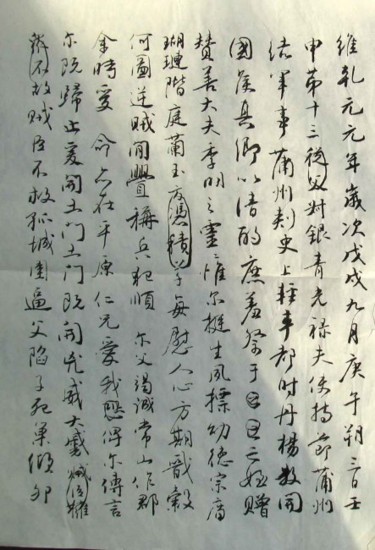 維乾元元年歲次戊戌九月庚午朔三日壬
申第十三從父對銀青光禄夫使持節蒲州
諸軍事蒲州刺史上輕車都楊開
國侯真卿以清酌庶羞祭于亡姪贈
贊善大夫季明之靈惟尔挺生夙標幼德宗廟
瑚璉階庭蘭玉方憑積善每慰人心方期戩穀
何圖逆賊間釁稱兵犯順尔父竭誠常山作郡
余時受命亦在平原仁兄愛我恐俾尔傳言
尔既歸止爰開土門土門既開兇威大蹙賊臣擁
衆不救賊臣不救孤城圍逼父陷子死巢傾卵